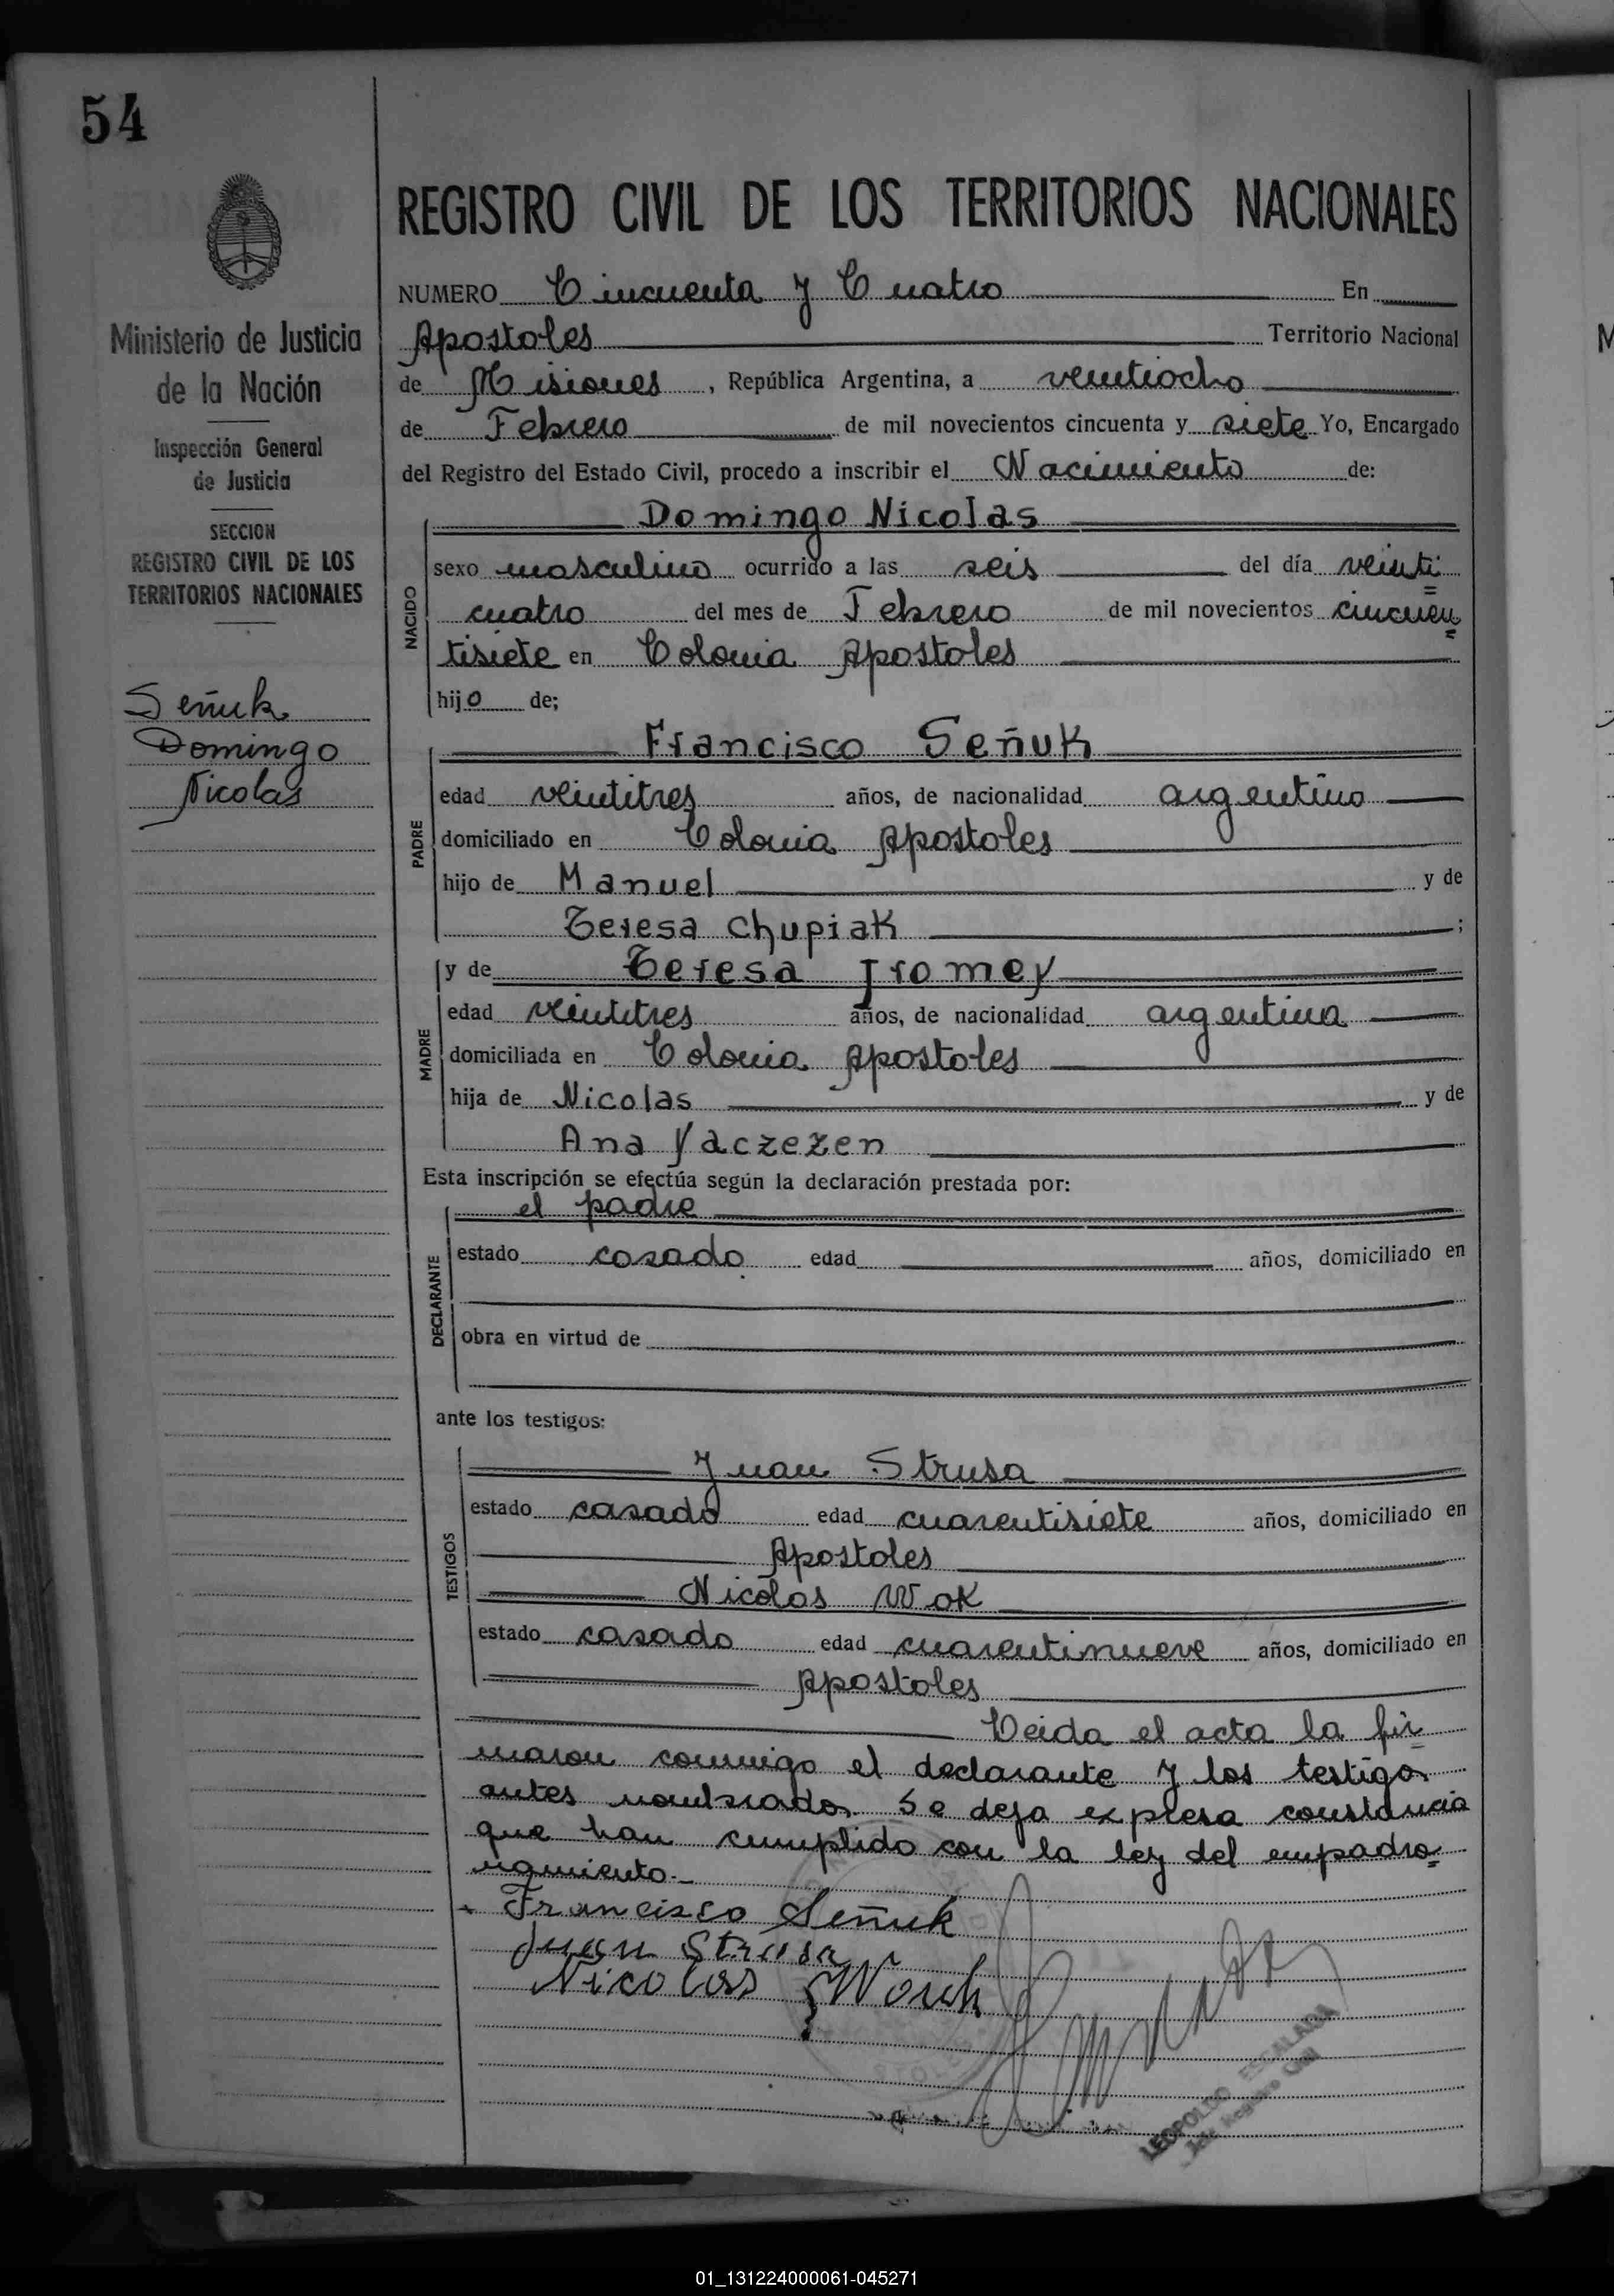 54
REGISTRO CIVIL DE LOS TERRITORIOS NACIONALES
Ministerio de Justicia
de la Nación
Inspección General
de Justicia
SECCION
REGISTRO CIVIL DE LOS
TERRITORIOS NACIONALES
Señuk
Domingo
Nicolas
NUMERO Cincuenta y Cuatro En
Apostoles Territorio Nacional
de Misiones, República Argentina, a veintiocho
de Febrero de mil novecientos cincuenta y siete Yo, Encargado
del Registro del Estado Civil, procedo a inscribir el Nacimiento de:
NACIDO
Domingo Nicolas
sexo masculino ocurrido a las seis del día veinti=
cuatro del mes de Febrero de mil novecientos cincuen=
tisiete en Colonia Apostoles
hijo de;
PADRE
Francisco Señuk
edad veintitres años, de nacionalidad argentino
domiciliado en Colonia Apostoles
hijo de Manuel y de
Teresa Chupiak ;
MADRE
y de Teresa Jromey
edad veintitres años, de nacionalidad argentina
domiciliada en Colonia Apostoles
hija de Nicolas y de
Ana Yaczezen
Esta inscripción se efectúa según la declaración prestada por:
DECLARANTE
el padre
estado casado edad años, domiciliado en
obra en virtud de
ante los testigos:
TESTIGOS
Juan Strusa
estado casado edad cuarentisiete años, domiciliado en
Apostoles
Nicolas Wok
estado casado edad cuarentinueve años, domiciliado en
Apostoles
Leida el acta la fir=
maron conmigo el declarante y los testigos
antes nombrados. Se deja expresa constancia
que han cumplido con la ley del empadro=
namiento.-
Francisco Señuk
Juan Strusa
Nicolas Wouk
LEOPOLDO ESCALADA
Jefe Registro Civil
01_131224000061-045271